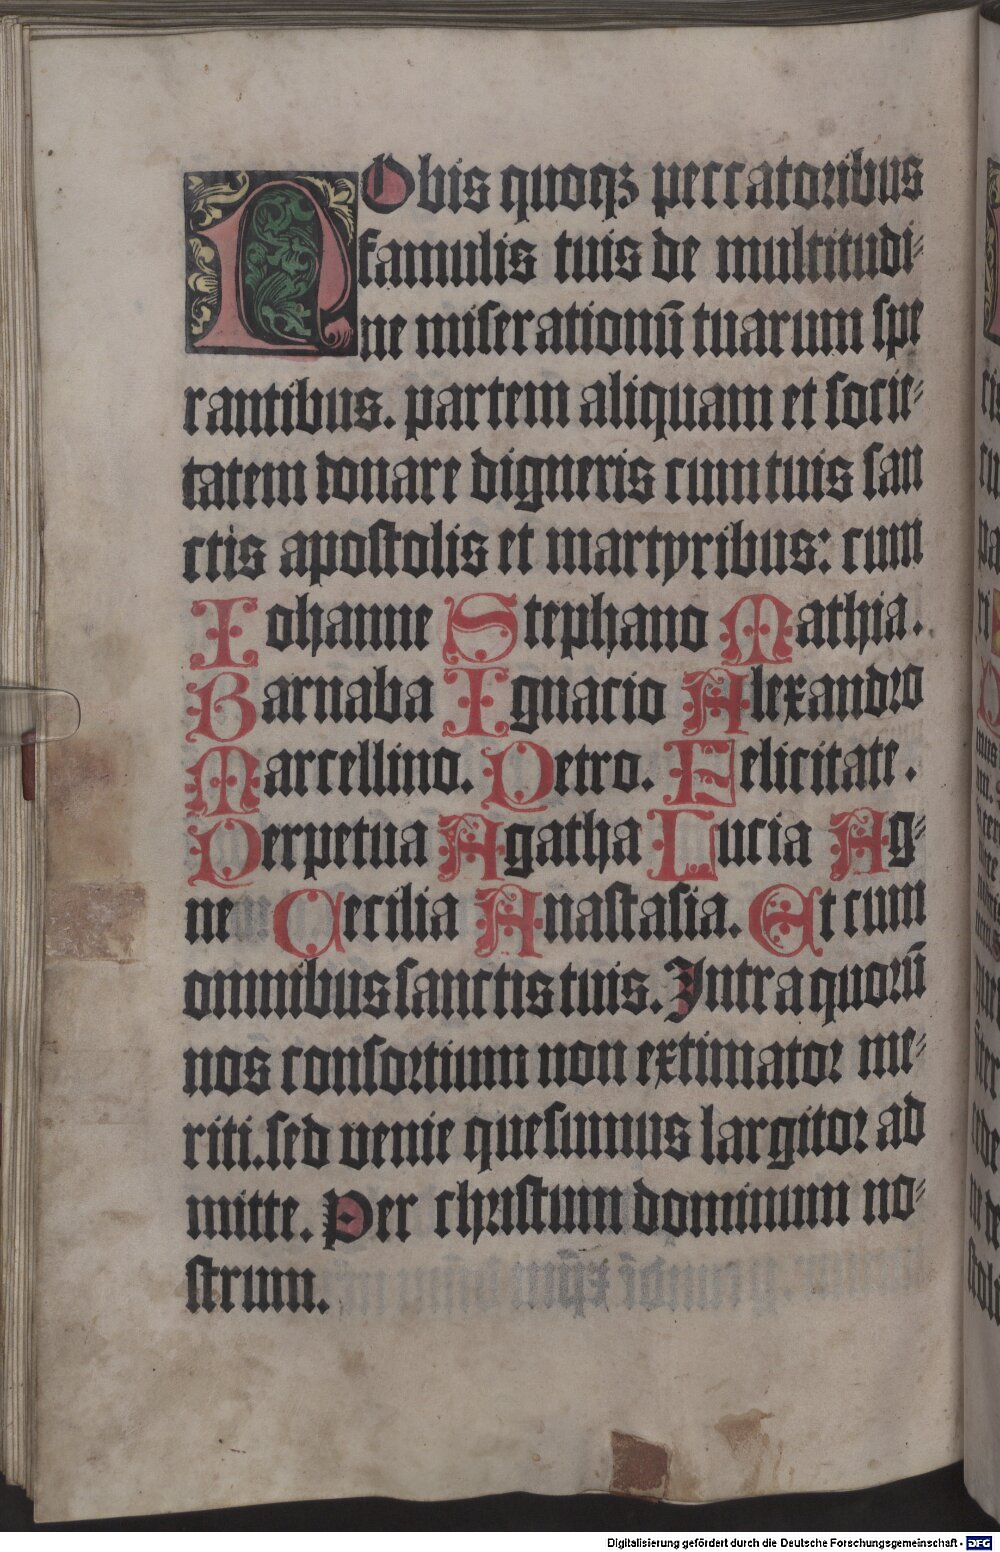 NObis quoqꝫ peccatoribus
famulis tuis de multitudi-
ne miserationū tuarum spe
rantibus. partem aliquam et socie-
tatem donare digneris cum tuis san
ctis apostolis et martyribus: cum
Iohanne Stephano Mathia.
Barnaba Ignacio Alexandro
Marcellino. Petro. Felicitate.
Perpetua Agatha Lucia Ag-
ne Cecilia Anastasia. Et cum
omnibus sanctis tuis. Intra quorū
nos consortium non extimator me-
riti. sed venie quesumus largitor ad
mitte. Per christum dominum no-
strum.
Digitalisierung gefördert durch die Deutsche Forschungsgemeinschaft - DFG